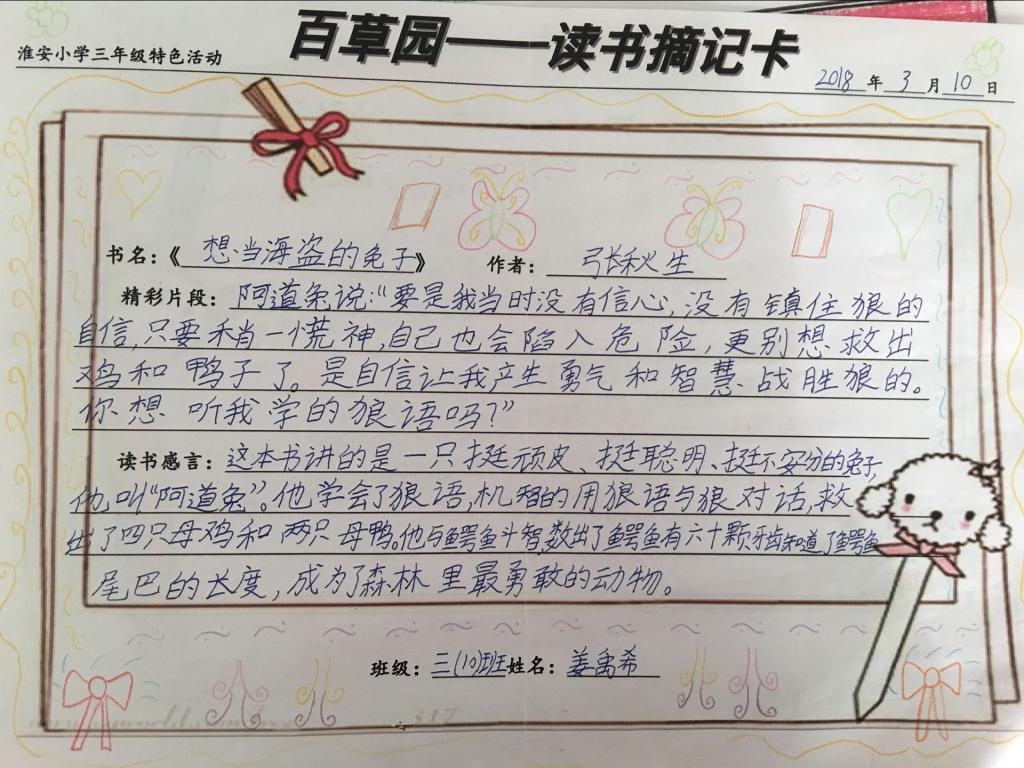 百草园——读书摘记卡
淮安小学三年级特色活动
2018 年 3 月 10 日
书名：《想当海盗的兔子》 作者：张秋生
精彩片段：阿道兔说：“要是我当时没有信心，没有镇住狼的
自信，只要稍一慌神，自己也会陷入危险，更别想救出
鸡和鸭子了。是自信让我产生勇气和智慧战胜狼的。
你想听我学的狼语吗？”
读书感言：这本书讲的是一只挺顽皮、挺聪明、挺不安分的兔子，
他叫“阿道兔”。他学会了狼语，机智的用狼语与狼对话，救
出了四只母鸡和两只母鸭。他与鳄鱼斗智，数出了鳄鱼有六十颗牙齿知道了鳄鱼
尾巴的长度，成为了森林里最勇敢的动物。
班级：三(10)班 姓名：姜禹希